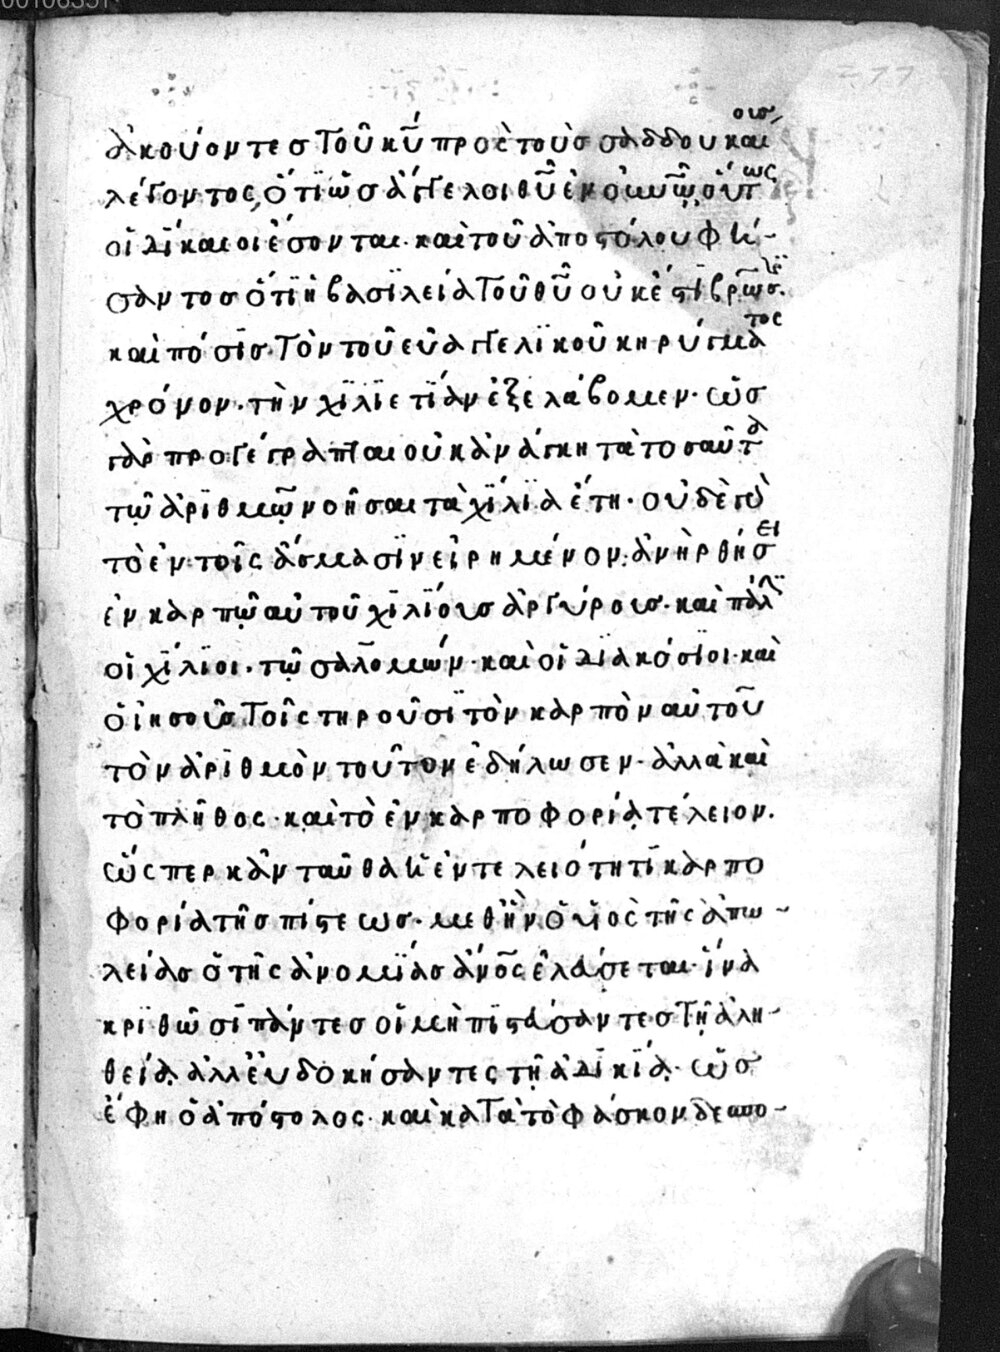 ἀκούοντεσ τοῦ κῦ πρὸς τοὺσ σαδδουκαιοισ,
λέγοντος, ὅτι ὡσ ἄγγελοι θῦ ἐν οὐνῶ, οὕτως
οἱ δίκαιοι ἔσονται. καὶ τοῦ ἀποστόλου φή-
σαντοσ ὅτι ἡ βασιλεία τοῦ θῦ οὐκ ἔστι βρῶσισ
καὶ πόσισ. τὸν τοῦ εὐαγγελικοῦ κηρύγματος
χρόνον. τὴν χιλιετίαν ἐξελάβομεν. ὡσ
γὰρ προγέγραπται οὐκ ἀνάγκη τὰ τοσαῦτα
τῷ ἀριθμῷ νοῆσαι τὰ χίλια ἔτη. οὐδὲ γὰρ
τὸ ἐν τοῖς ἄσμασιν εἰρημένον. ἀνὴρ θήσει
ἐν καρπῷ αὐτοῦ χιλίουσ ἀργύρουσ. καὶ πάλιν
οἱ χίλιοι. τῷ σαλομών. καὶ οἱ διακόσιοι. καὶ
ὁ ἰησοῦσ τοῖς τηροῦσι τὸν καρπὸν αὐτοῦ
τὸν ἀριθμὸν τοῦτον ἐδήλωσεν. ἀλλὰ καὶ
τὸ πλῆθος. καὶ τὸ ἐν καρποφορίᾳ τέλειον.
ὥςπερ κἀνταῦθα καὶ ἐν τελειότητι καρπο
φορία τῆσ πίστεωσ. μεθ ἣν ὁ υἱὸς τῆς ἀπω-
λείασ ὁ τῆς ἀνομίασ ἄνος ἐλεύσεται. ἵνα
κριθῶσι πάντεσ οἱ μὴ πιστεύσαντεσ τῇ ἀλη-
θείᾳ ἀλλ εὐδοκήσαντες τῇ ἀδικίᾳ. ὡσ
ἔφη ὁ ἀπόστολος. καὶ κατὰ τὸ φάσκον δεσπο-